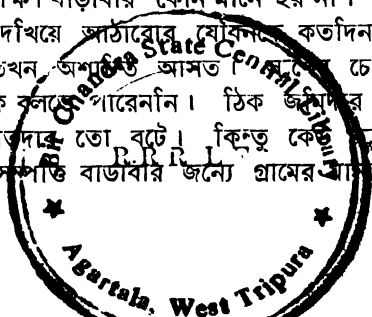 বাড়াবার কোন মানে হয় না।
দেখিয়ে আঠারোর যৌবনকে কতদিন
তখন অশান্তি আসত।
ক বলতে পারেননি। ঠিক জমিদার
তো বটে। কিন্তু
সম্পত্তি বাড়াবার জন্যে গ্রামের
Bir Chandra State Central Library
R.R.R.L.F
Agartala, West Tripura